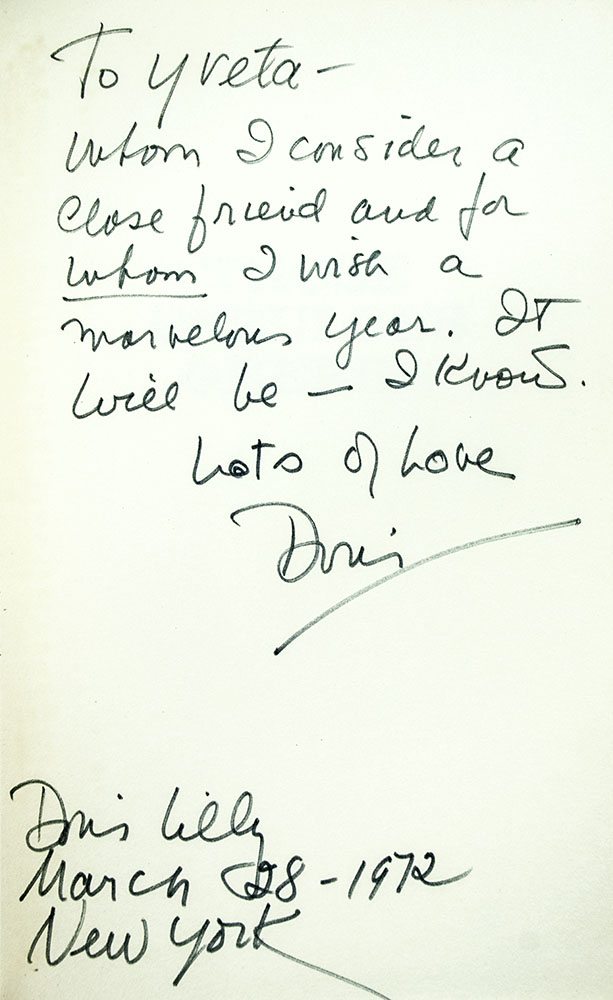 To Yveta —
whom I consider a
close friend and for
whom I wish a
marvelous year. It
will be — I know.
Lots of Love
Doris
Doris Lilly
March 28 - 1972
New York